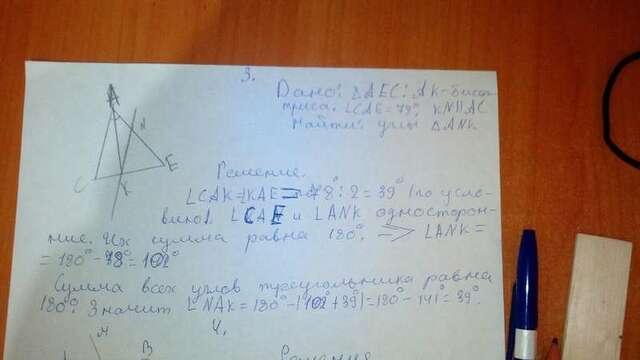 3.
Дано: △AEC: AK-биссек-
триса. ∠CAE=78°, KN||AC
Найти: углы △ANK
A
N
C
K
E
Решение.
∠CAK=∠KAE= 78°:2=39° (по усло-
вию). ∠CAE и ∠ANK односторон-
ние. Их сумма равна 180°. => ∠ANK=
=180°-78°=102°
Сумма всех углов треугольника равна
180°. Значит ∠NAK=180°-(102°+39°)=180°-141°=39°.
4.
M
B
Решение